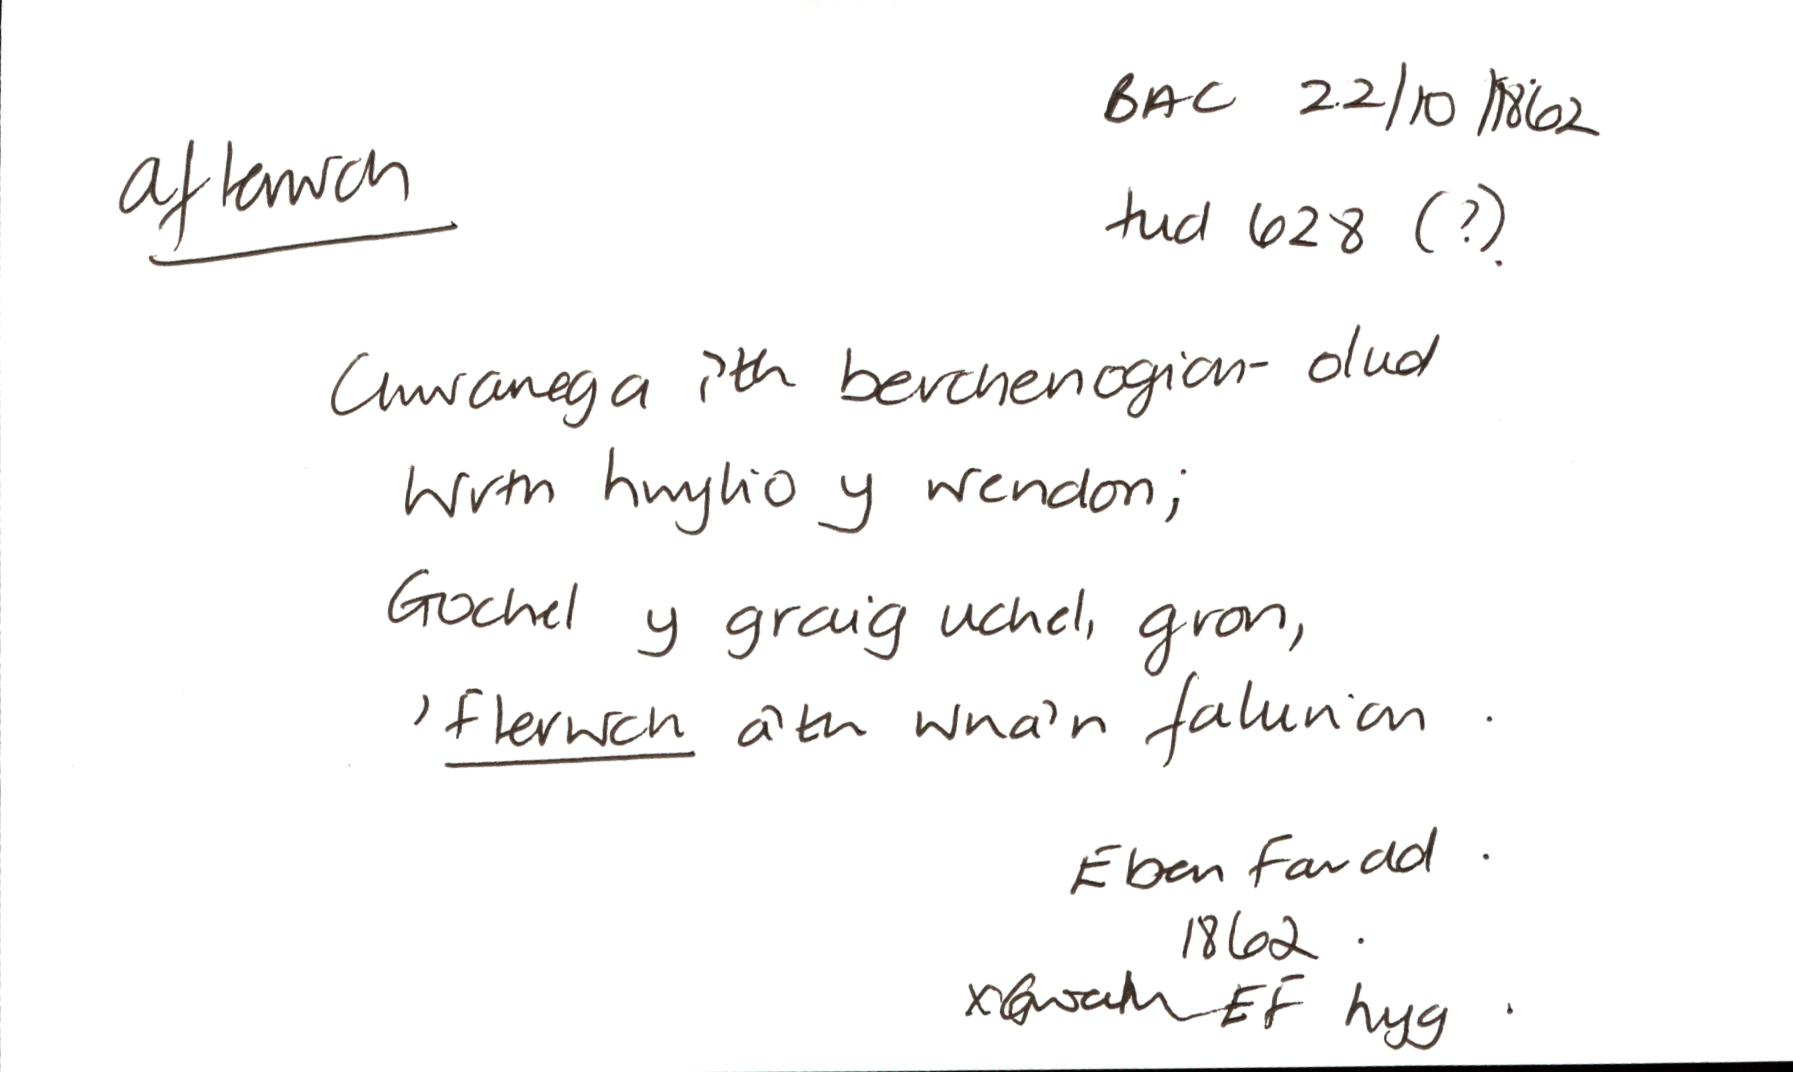 aflerwch
BAC 22/10/1862
tud 628 (?)
Chwanega i'th berchenogion - olud
Wrth hwylio y wendon;
Gochel y graig uchel, gron,
'flerwch a'th wna'n falurion.
Eben Fardd.
1862.
EF hyg.